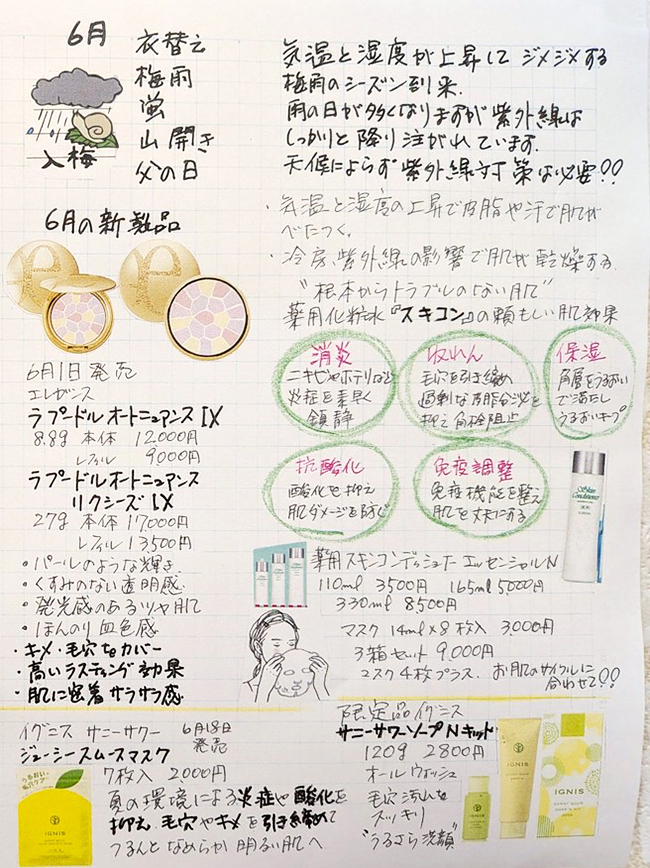 6月
衣替え
梅雨
蛍
山開き
父の日
入梅
気温と湿度が上昇して ジメジメする
梅雨のシーズン到来.
雨の日が多くなりますが紫外線は
しっかりと降り注がれています.
天候によらず紫外線対策は必要!!
・気温と湿度の上昇で皮脂や汗で肌が
べたつく.
・冷房、紫外線の影響で肌が乾燥する.
"根本からトラブルのない肌"
薬用化粧水『スキコン』の頼もしい肌効果
消炎
ニキビやホテリなど
炎症を素早く
鎮静
収れん
毛穴を引き締め
過剰な皮脂分泌を
抑え角栓阻止
保湿
角層をうるおい
で満たし
うるおいキープ
抗酸化
酸化を抑え
肌ダメージを防ぐ
免疫調整
免疫機能を整え
肌を丈夫にする
Skin
Conditioner
薬用スキンコンディショナー エッセンシャルN
110ml 3500円 165ml 5000円
330ml 8500円
マスク 14ml×8枚入 3,000円
3箱セット 9,000円
マスク4枚プラス. お肌のサイクルに
合わせて!!
6月の新製品
6月1日発売
エレガンス
ラプードル オートニュアンス IX
8.8g 本体 12000円
レフィル 9000円
ラプードル オートニュアンス
リクシーズ IX
27g 本体 17000円
レフィル 13500円
・パールのような輝き
・くすみのない透明感.
・発光感のあるツヤ肌
・ほんのり血色感
・キメ・毛穴もカバー
・高いラスティング効果
・肌に密着サラサラ感
イグニス サニーサワー 6月18日
発売
ジューシースムースマスク
7枚入 2000円
夏の環境による炎症や酸化を
抑え毛穴やキメを引き締めて
つるんとなめらか明るい肌へ
うるおい
毛穴ケア
IGNIS
限定品イグニス
サニーサワーソープNキット
120g 2800円
オールウォッシュ
毛穴汚れも
スッキリ
"うるさら洗顔"
IGNIS
IGNIS